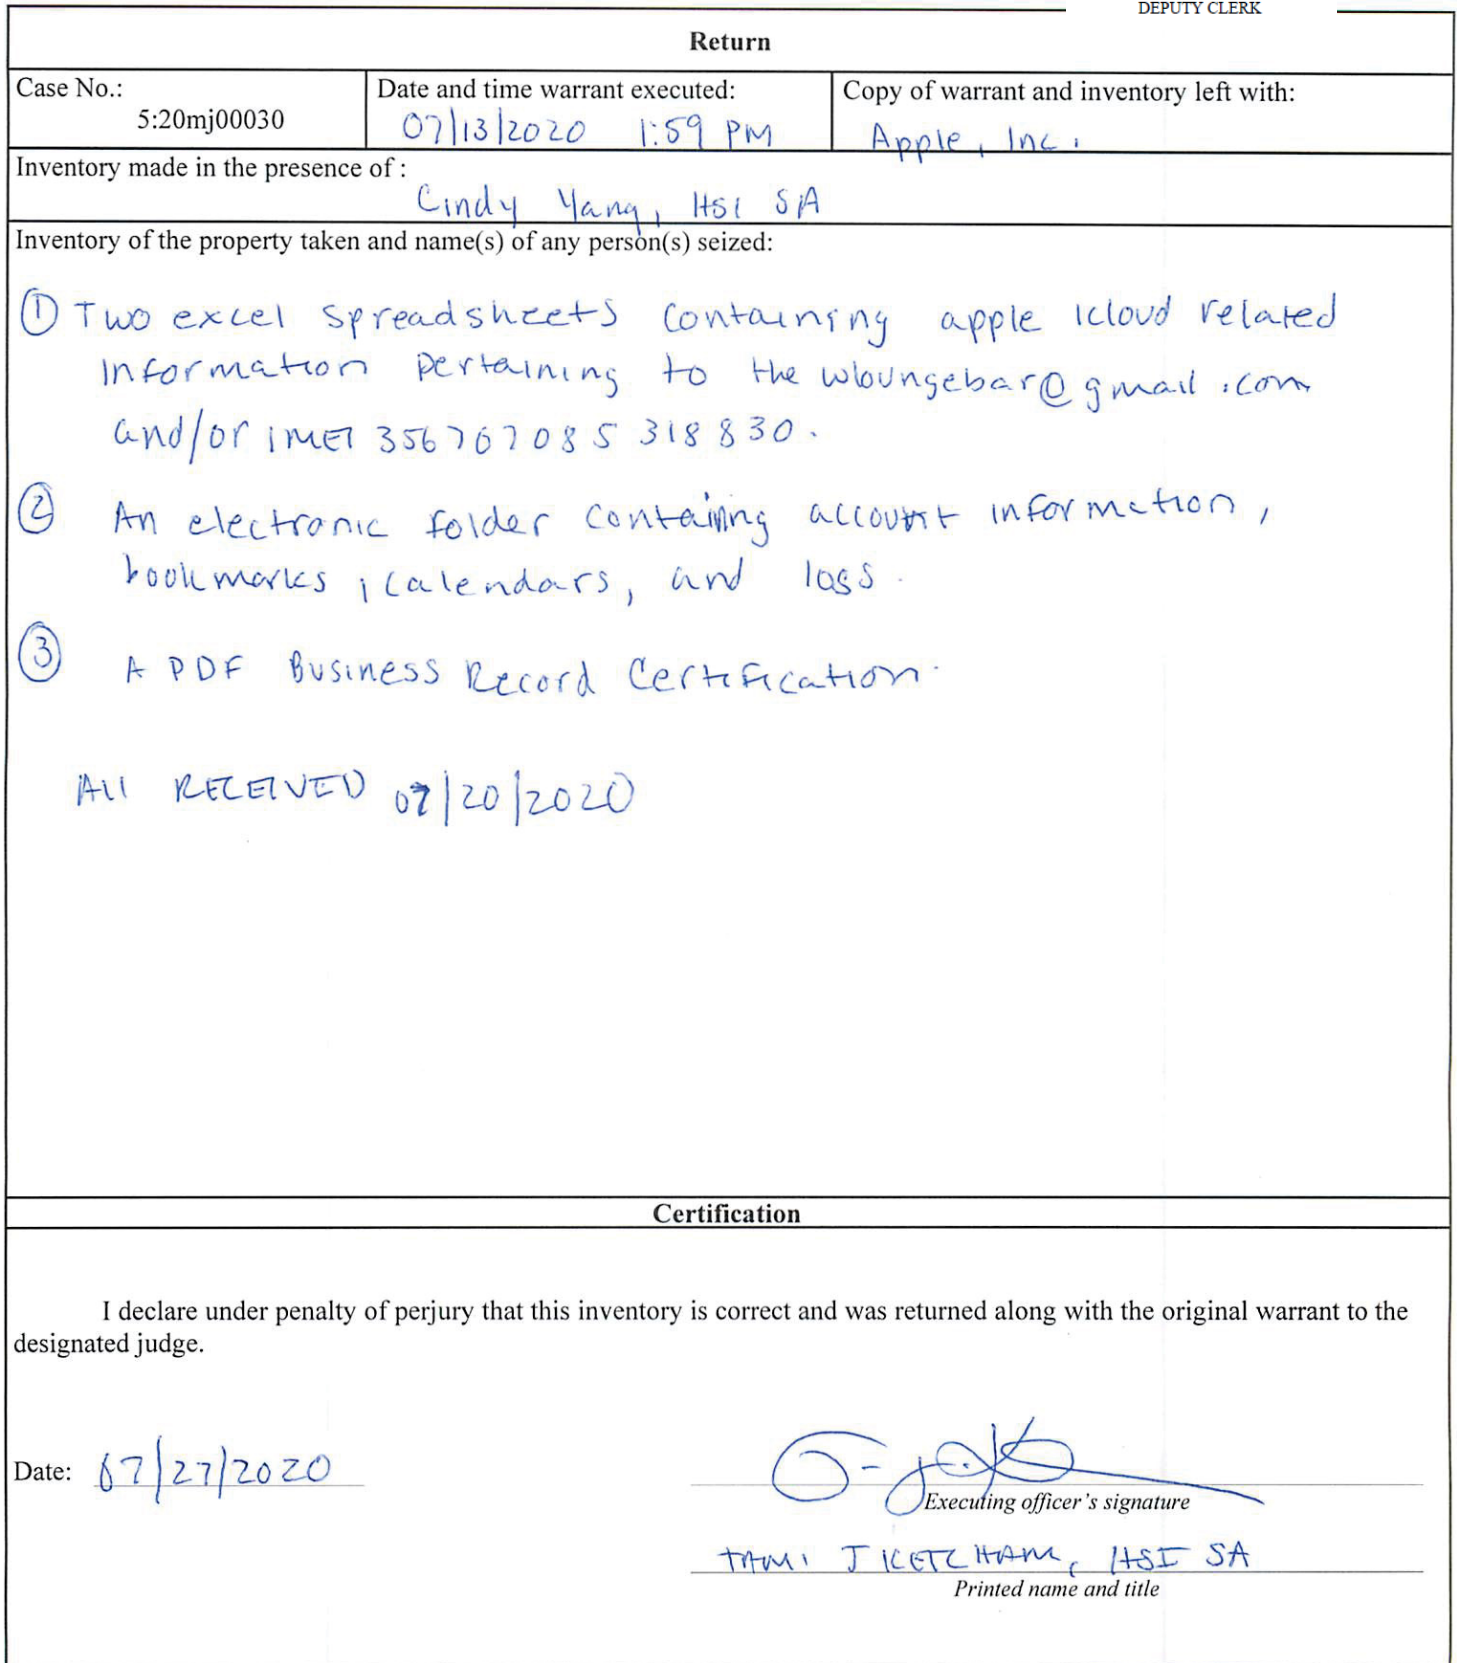 DEPUTY CLERK
Return
Case No.:
5:20mj00030
Date and time warrant executed:
07/13/2020 1:59 PM
Copy of warrant and inventory left with:
Apple, Inc.
Inventory made in the presence of :
Cindy Yang, HSI SA
Inventory of the property taken and name(s) of any person(s) seized:
① Two excel spreadsheets containing apple icloud related
information pertaining to the wloungebar@gmail.com
and/or IMEI 356707085318830.
② An electronic folder containing account information,
bookmarks, calendars, and logs.
③ A PDF Business Record Certification.
All RECEIVED 07/20/2020
Certification
I declare under penalty of perjury that this inventory is correct and was returned along with the original warrant to the
designated judge.
Date: 07/27/2020
Executing officer's signature
TAMI J KETCHAM, HSI SA
Printed name and title